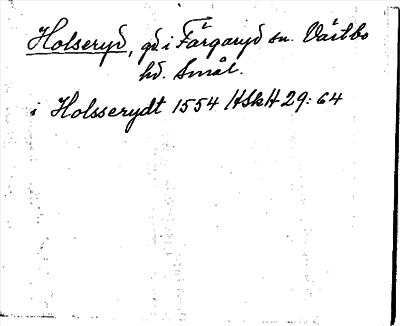 Holseryd, gd i Färgaryd sn. Västbo
hd. Smål.
i Holsserydt 1554 HSkH 29: 64